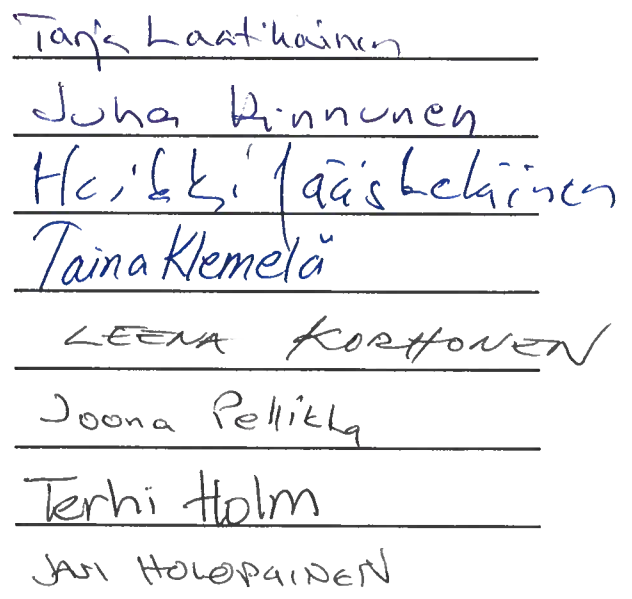 Tanja Laatikainen
Juha Kinnunen
Heikki Jääskeläinen
Taina Klemelä
LEENA KORHONEN
Joona Pellikka
Terhi Holm
JARI HOLOPAINEN